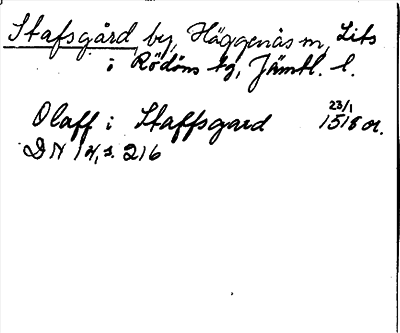 Stafsgård by, Häggenås sn, Lits
i Rödöns tg, Jämtl. l.
Olaff i Staffsgard 23/1 1518 or.
DN 14, s. 216